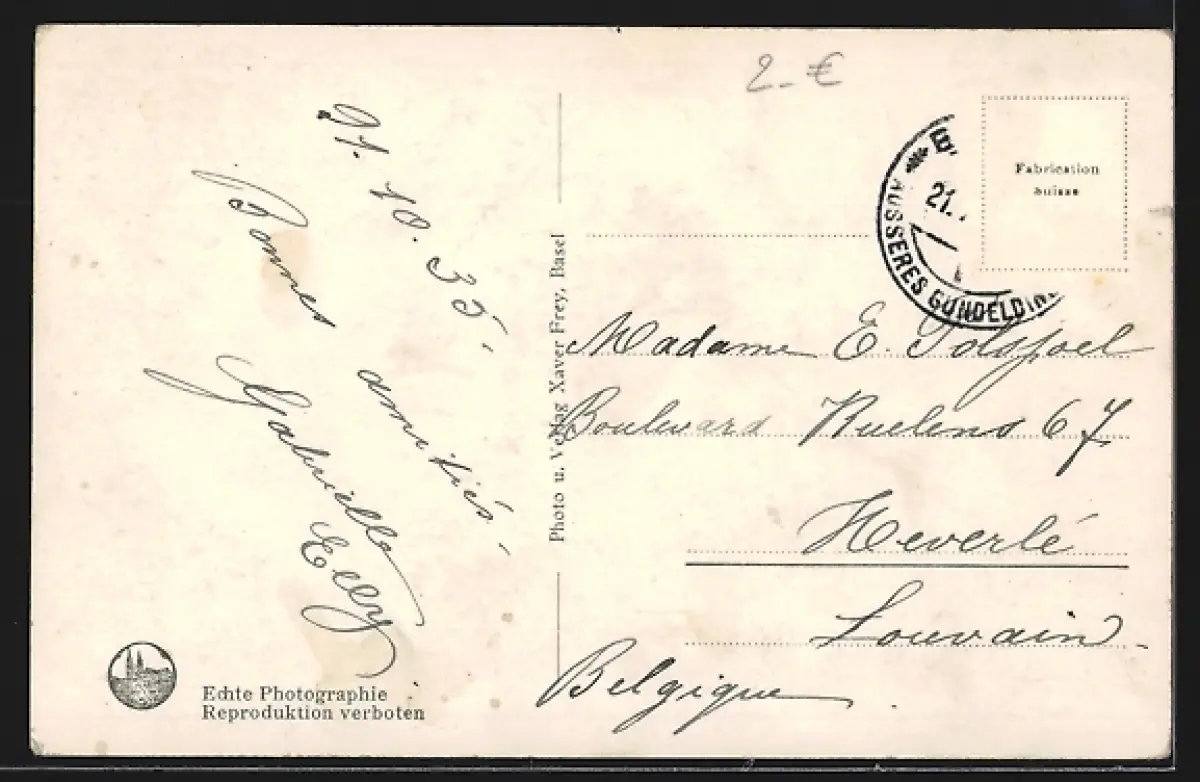 2.- €
21. 10. 35.-
Bonnes amitiés.-
Gabrielle
Elly
Echte Photographie
Reproduktion verboten
Photo u. Verlag Xaver Frey, Basel
21.
AUSSERES GUNDELDIN
Fabrication
suisse
Madame E. Polspoel
Boulevard Ruelens 67
Heverlé
Louvain
Belgique